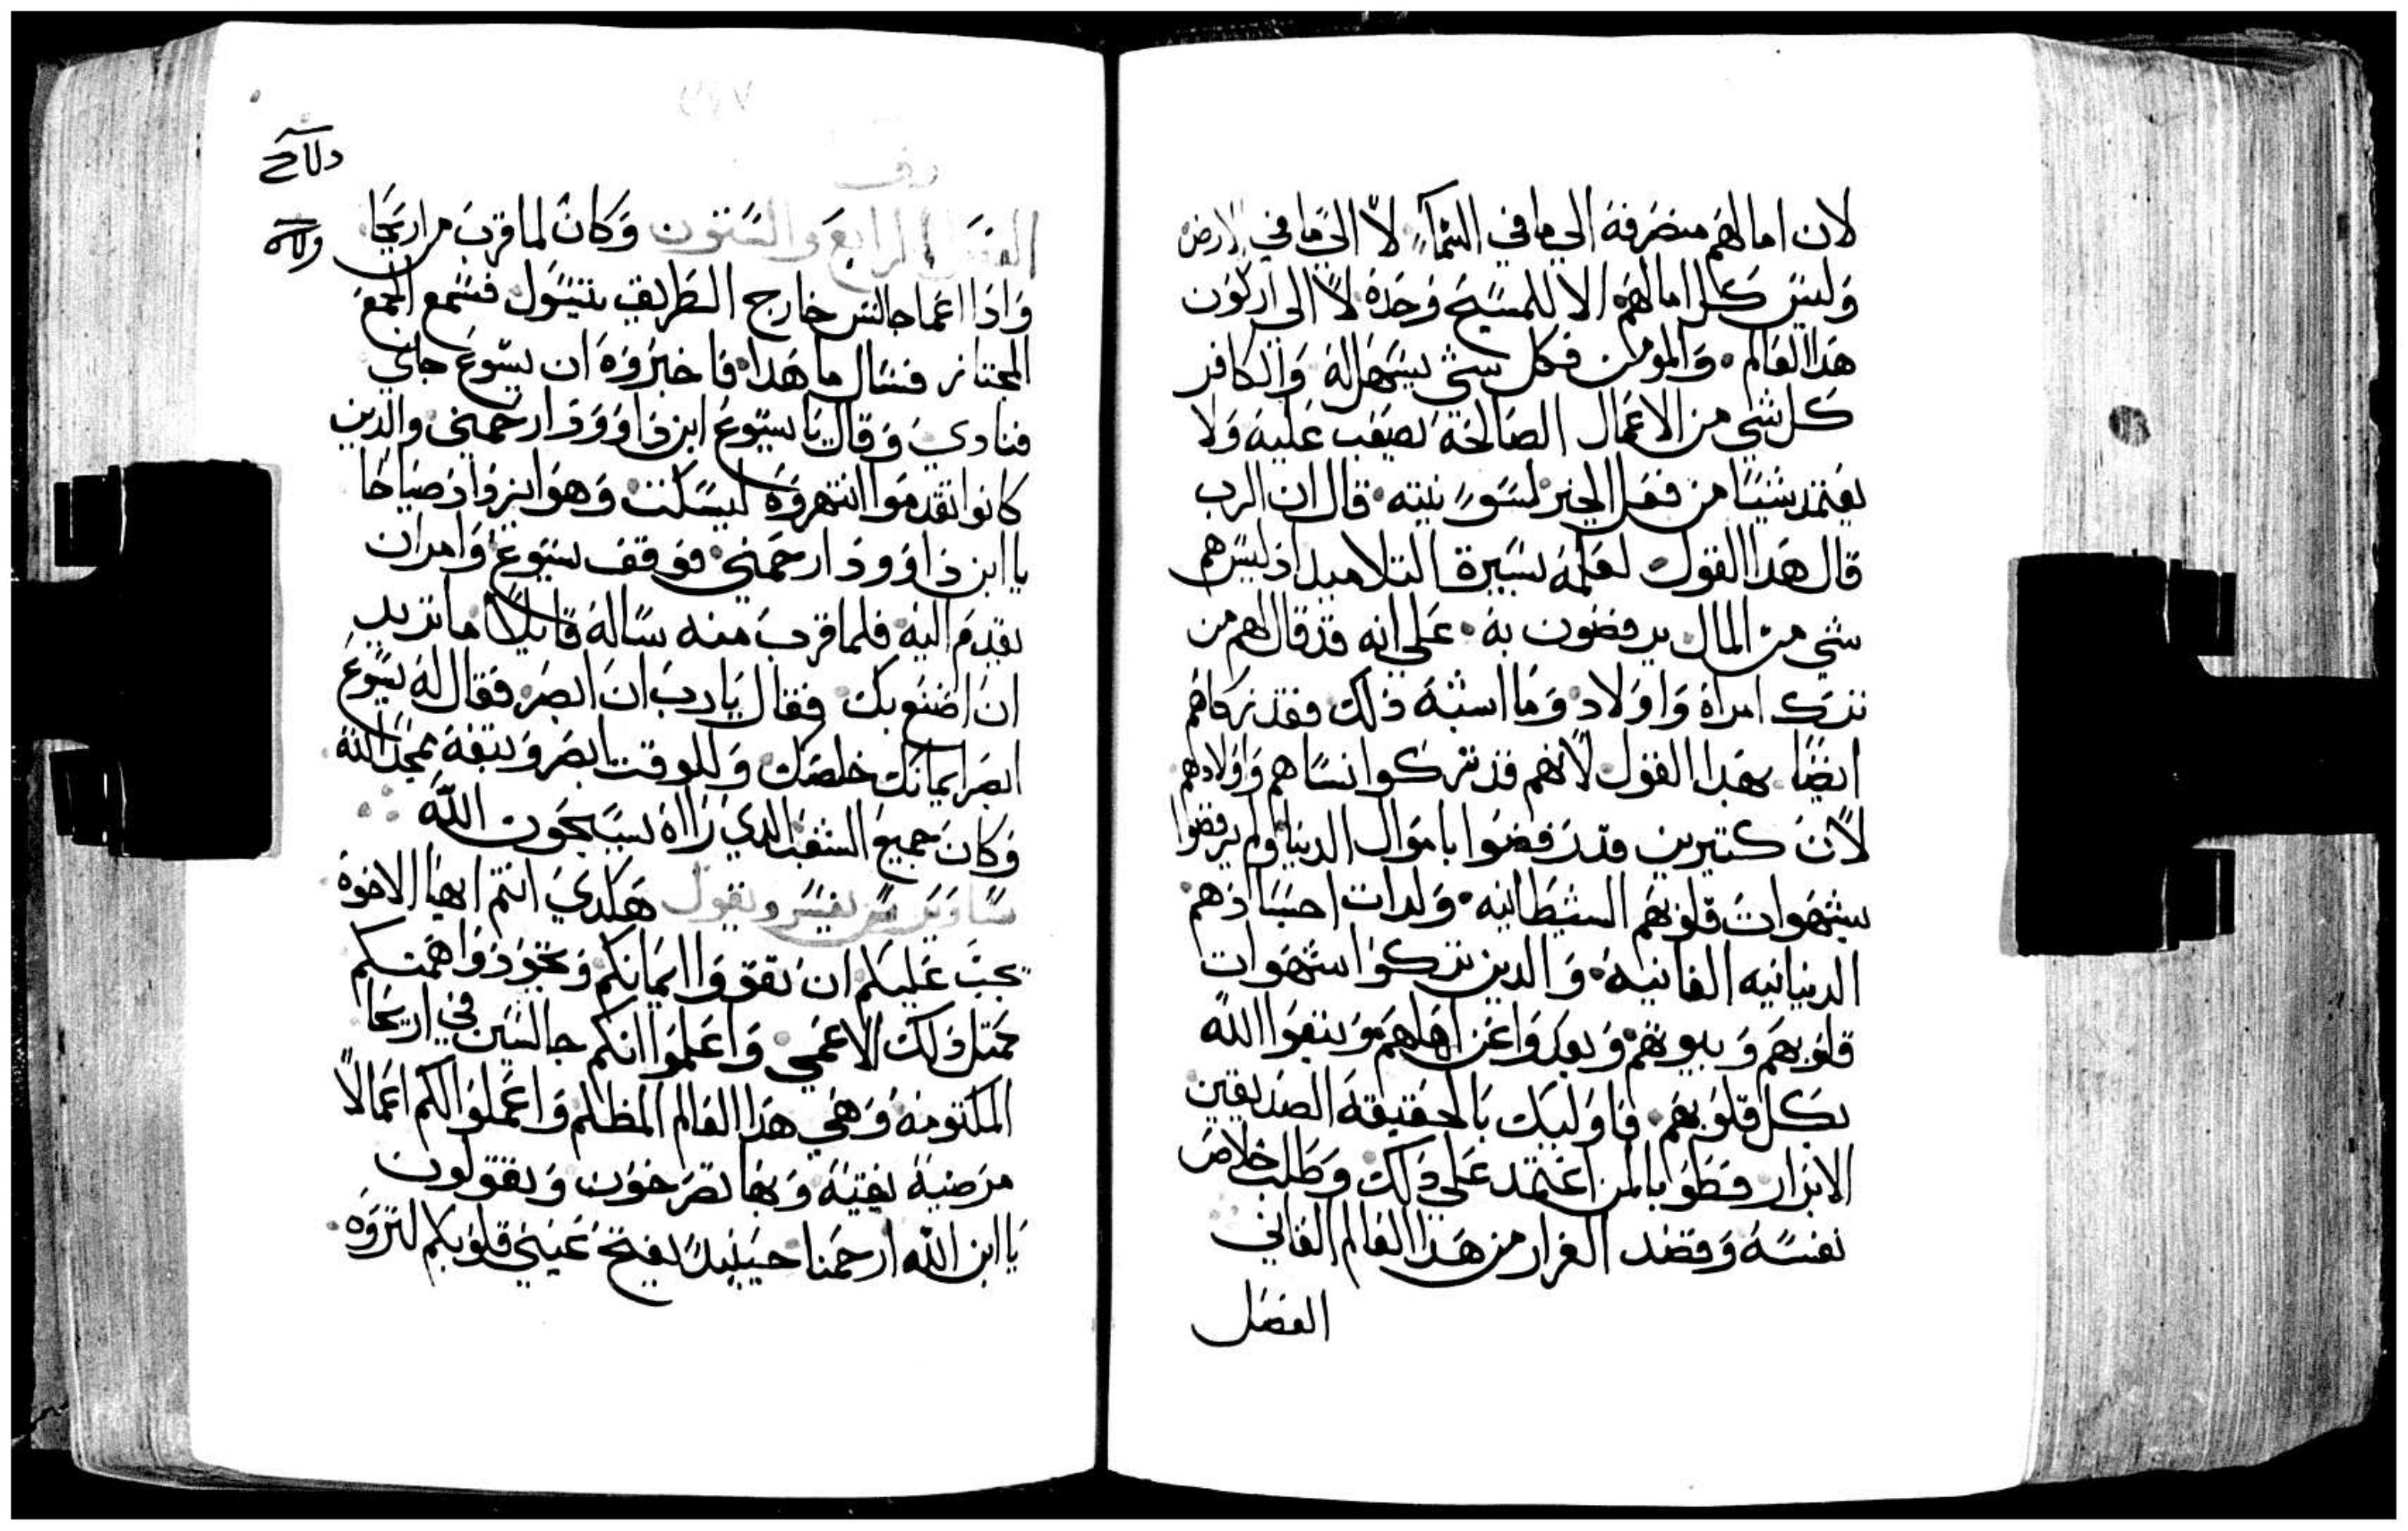 لان امالهم منصرفة الي ما في السماء لا الي ما في الارض
وليس كل امالهم الا للمسيح وحده لا الي اركون
هدا العالم والمومن فكل شي يسهل له والكافر
كل شي من الاعمال الصالحه يصعب عليه ولا
يعتمد شيا من فعل الخير لسو نيته قال ان الرب
قال هدا القول لعلمه بسيرة التلاميد اد ليس هم
شي من المال يرفضون به علي انه قد قال لهم من
ترك امراة واولاد وما اشبه دلك فقد
ايضا بهدا القول لانهم قد تركوا نساهم واولادهم
لان كتيرين قد رفضوا باموال الدنيا ولم يرفضوا
بشهوات قلوبهم الشيطانيه ولدات اجسادهم
الدنيانيه الفانيه والدين تركوا شهوات
قلوبهم وبيوتهم وبعدوا عن اهلهم وتبعوا الله
بكل قلوبهم فاوليك بالحقيقة الصديقين
الابرار فطوبا لمن اعتمد علي دلك وطلب خلاص
نفسه وقصد الفرار من هدا العالم الفاني
الفصل
الفصل الرابع والستون وكان لما قرب من اريحا
وادا اعما جالس خارج الطريق يتسول فسمع الجمع
المجتاز فسال ما هدا فاخبروه ان يسوع جاي
فنادي وقال يا يسوع ابن داوود ارحمني والدين
كانوا تقدموا انتهروه ليسكت وهو ايزداد صياحا
يا ابن داوود ارحمني فوقف يسوع وامر ان
يقدم اليه فلما قرب منه ساله قايلا ما تريد
ان اصنع بك فقال يا رب ان ابصر فقال له يسوع
ابصر ايمانك خلصك وللوقت ابصر وتبعه يمجد الله
وكان جميع الشعب الدي راه يسبحون الله
يفسر ويقول هكدي انتم ايها الاخوة
يجب عليكم ان تقووا ايمانكم وتجودوا همتكم
بمتل دلك الاعمي واعلموا انكم جالسين في اريحا
وهي هدا العالم المظلم واعملوا لكم اعمالا
مرضية نقية وبها تصرخون وتقولون
يا ابن الله ارحمنا حينيد يفتح عيني قلوبكم لتروه